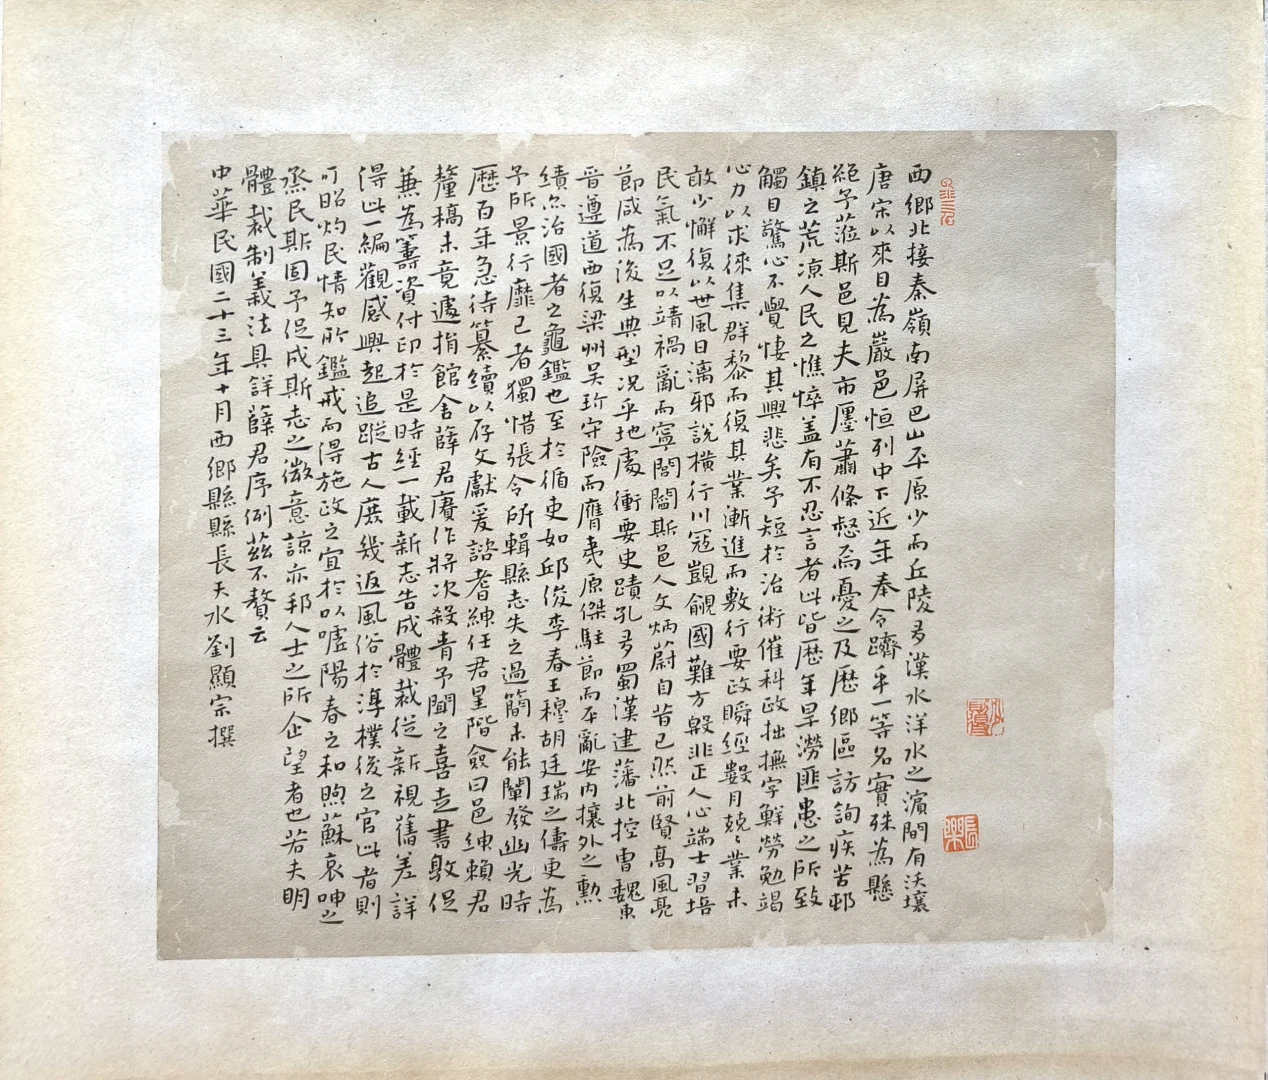 西鄉北接秦嶺南屏巴山平原少而丘陵多漢水洋水之濱間有沃壤
唐宋以來目為巖邑恒列中下近年奉令躋乎一等名實殊為懸
絕予蒞斯邑見夫市廛蕭條怒焉憂之及歷鄉區訪詢疾苦邨
鎮之荒涼人民之憔悴蓋有不忍言者此皆歷年旱澇匪患之所致
觸目驚心不覺悽其興悲矣予短於治術催科政拙撫字鮮勞勉竭
心力以求徠集群黎而復其業漸進而敷行要政瞬經數月兢兢業業未
敢少懈復以世風日漓邪說橫行川寇覬覦國難方殷非正人心端士習培
民氣不足以靖禍亂而寧閭閻斯邑人文炳蔚自昔已然前賢高風亮
節咸為後生典型况乎地處衝要史蹟孔多蜀漢建藩北控曹魏東
晉遵道西復梁州吳玠守險而膺夷原傑駐節而平亂安內攘外之勳
績亦治國者之龜鑑也至於循吏如邱俊李春王穆胡廷瑞之儔更為
予所景行靡已者獨惜張令所輯縣志失之過簡未能闡發幽光時
歷百年急待纂續以存文獻爰諮耆紳任君星階僉曰邑紳賴君
釐稿未竟遽捐館舍薛君賡作將次殺青予聞之喜走書敦促
兼為籌資付印於是時經一載新志告成體裁從新視舊差詳
得此一編觀感興起追蹤古人庶幾返風俗於淳樸後之官此者則
可昭灼民情知所鑑戒而得施政之宜於以噓陽春之和煦蘇哀呻之
烝民斯固予促成斯志之微意諒亦邦人士之所企望者也若夫明
體裁制義法具詳薛君序例茲不贅云
中華民國二十三年十月西鄉縣縣長天水劉顯宗撰